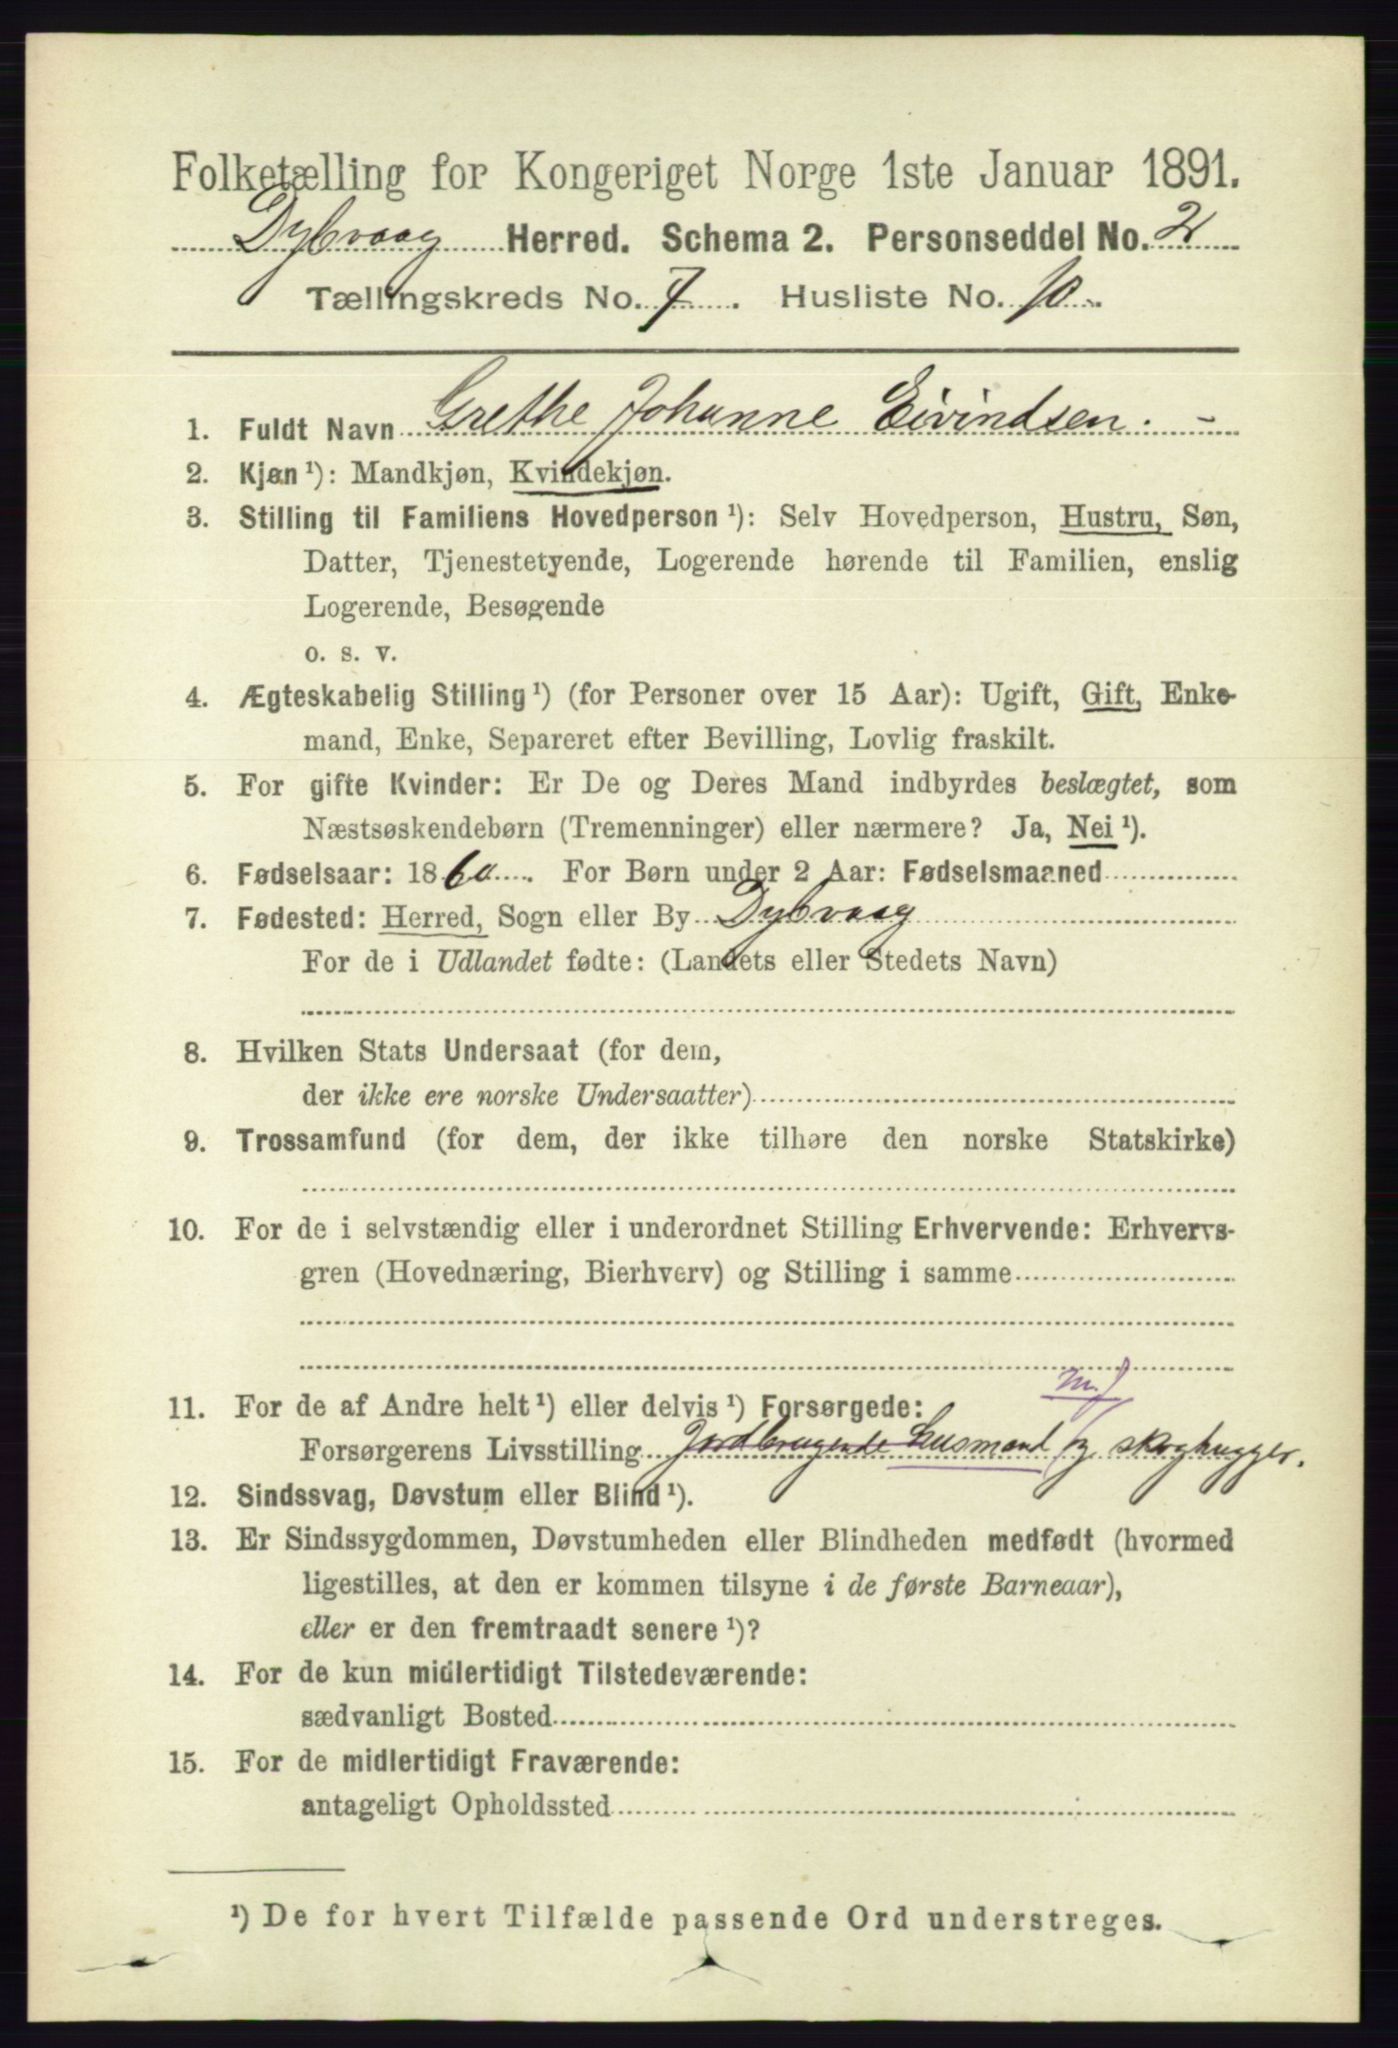 Folketælling for Kongeriget Norge 1ste Januar 1891.
Dybvaag Herred. Schema 2. Personseddel No. 2
Tællingskreds No. 7. Husliste No. 10.
1. Fuldt Navn Grethe Johanne Eivindsen. -
2. Kjøn ¹): Mandkjøn, Kvindekjøn.
3. Stilling til Familiens Hovedperson ¹): Selv Hovedperson, Hustru, Søn,
Datter, Tjenestetyende, Logerende hørende til Familien, enslig
Logerende, Besøgende
o. s. v.
4. Ægteskabelig Stilling ¹) (for Personer over 15 Aar): Ugift, Gift, Enke-
mand, Enke, Separeret efter Bevilling, Lovlig fraskilt.
5. For gifte Kvinder: Er De og Deres Mand indbyrdes beslægtet, som
Næstsøskendebørn (Tremenninger) eller nærmere? Ja, Nei ¹).
6. Fødselsaar: 1860. For Børn under 2 Aar: Fødselsmaaned
7. Fødested: Herred, Sogn eller By Dybvaag
For de i Udlandet fødte: (Landets eller Stedets Navn)
8. Hvilken Stats Undersaat (for dem,
der ikke ere norske Undersaatter)
9. Trossamfund (for dem, der ikke tilhøre den norske Statskirke)
10. For de i selvstændig eller i underordnet Stilling Erhvervende: Erhvervs-
gren (Hovednæring, Bierhverv) og Stilling i samme
m.f
11. For de af Andre helt ¹) eller delvis ¹) Forsørgede:
Forsørgerens Livsstilling Jordbrugende Husmand og skoghugger.
12. Sindssvag, Døvstum eller Blind ¹).
13. Er Sindssygdommen, Døvstumheden eller Blindheden medfødt (hvormed
ligestilles, at den er kommen tilsyne i de første Barneaar),
eller er den fremtraadt senere ¹)?
14. For de kun midlertidigt Tilstedeværende:
sædvanligt Bosted
15. For de midlertidigt Fraværende:
antageligt Opholdssted
¹) De for hvert Tilfælde passende Ord understreges.